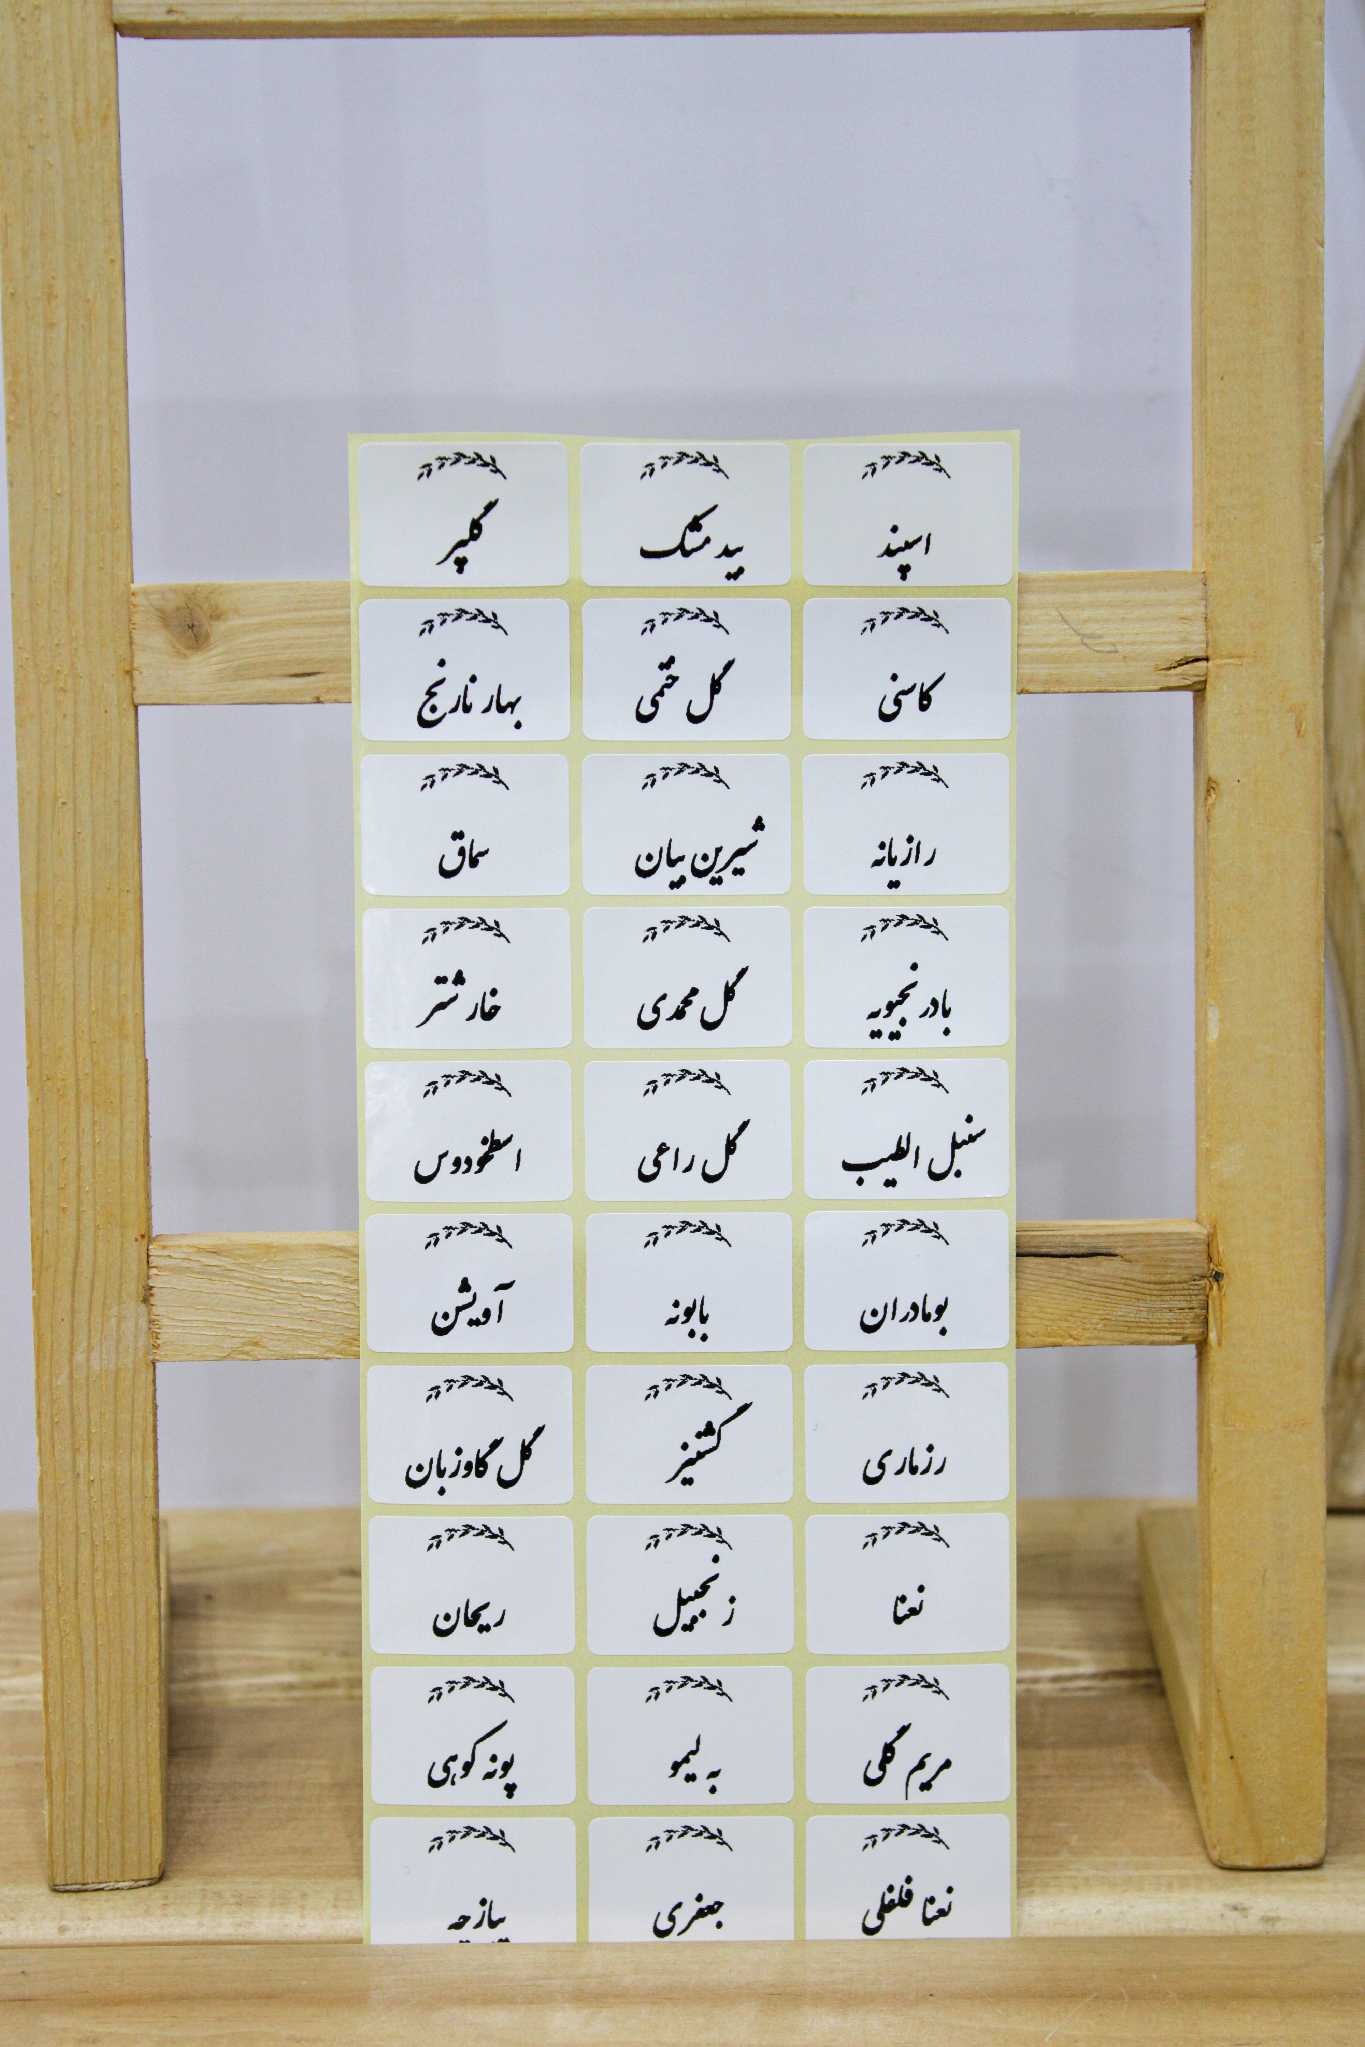 اسپند
بید مشک
گلپر
کاسنی
گل ختمی
بهار نارنج
رازیانه
شیرین بیان
سماق
بادرنجبویه
گل محمدی
خار شتر
سنبل الطیب
گل راعی
اسطخودوس
بومادران
بابونه
آویشن
رزماری
گشنیز
گل گاوزبان
نعنا
زنجبیل
ریحان
مریم گلی
به لیمو
پونه کوهی
نعنا فلفلی
جعفری
پیازچه